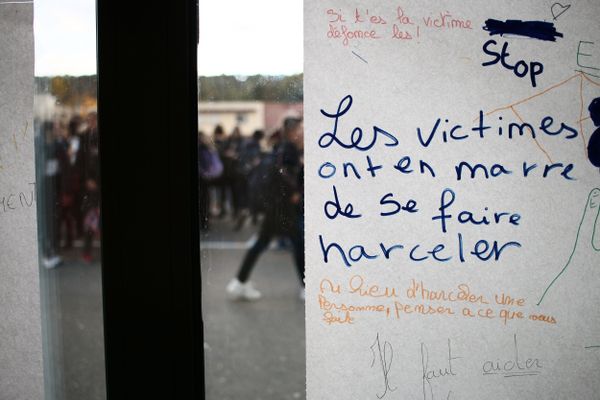 Si t'es la victime
défonce les !
Stop
E
Les victimes
ont en marre
de se faire
harceler
MENT
Au lieu d'harceler une
Personne, penser a ce que vous
faite
Il faut aider